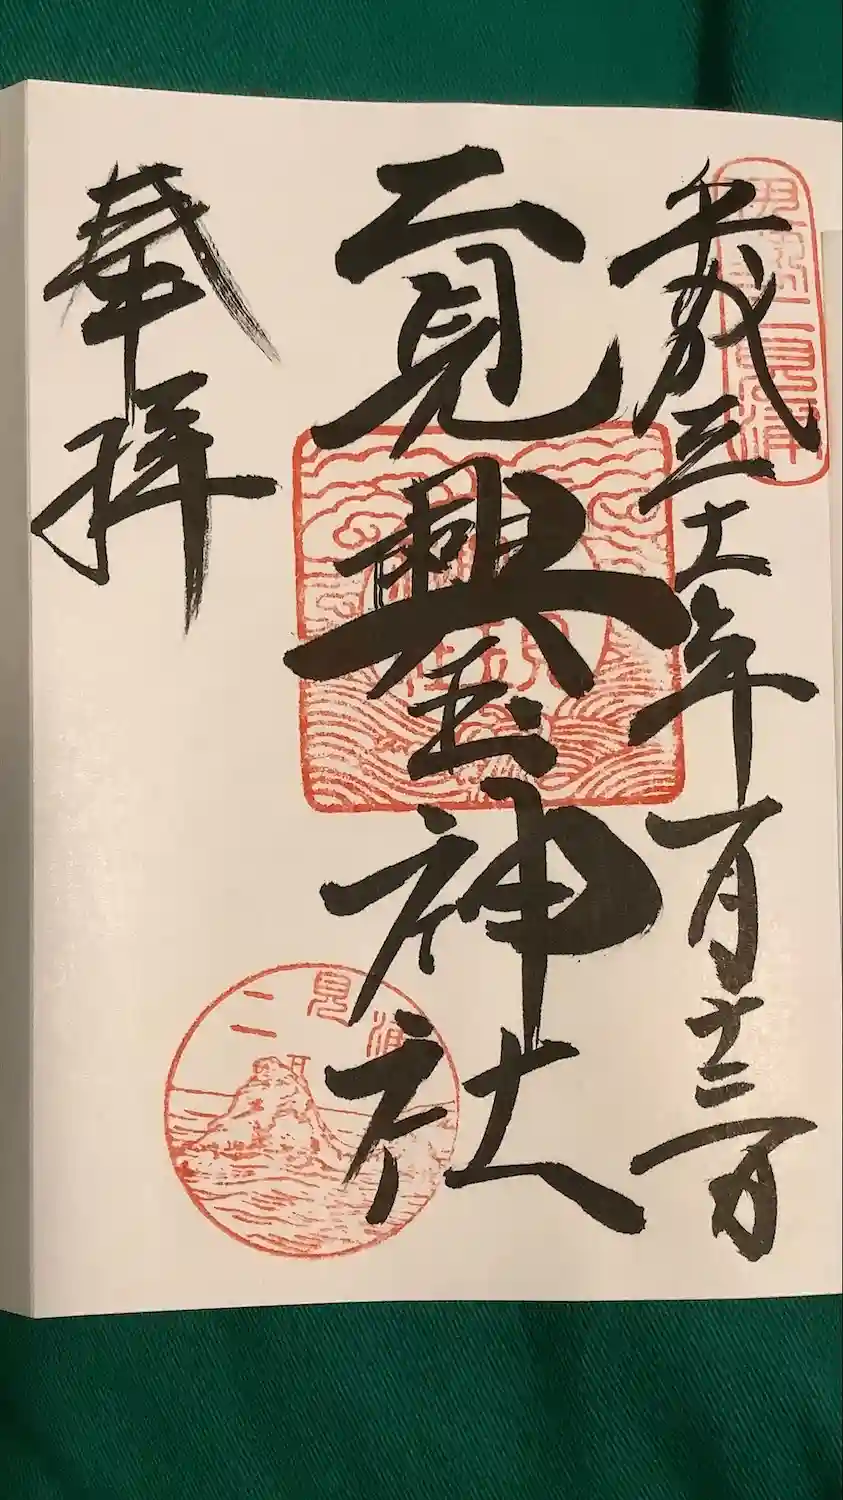 平成三十一年一月十二日
二見興玉神社
奉拝
二見浦